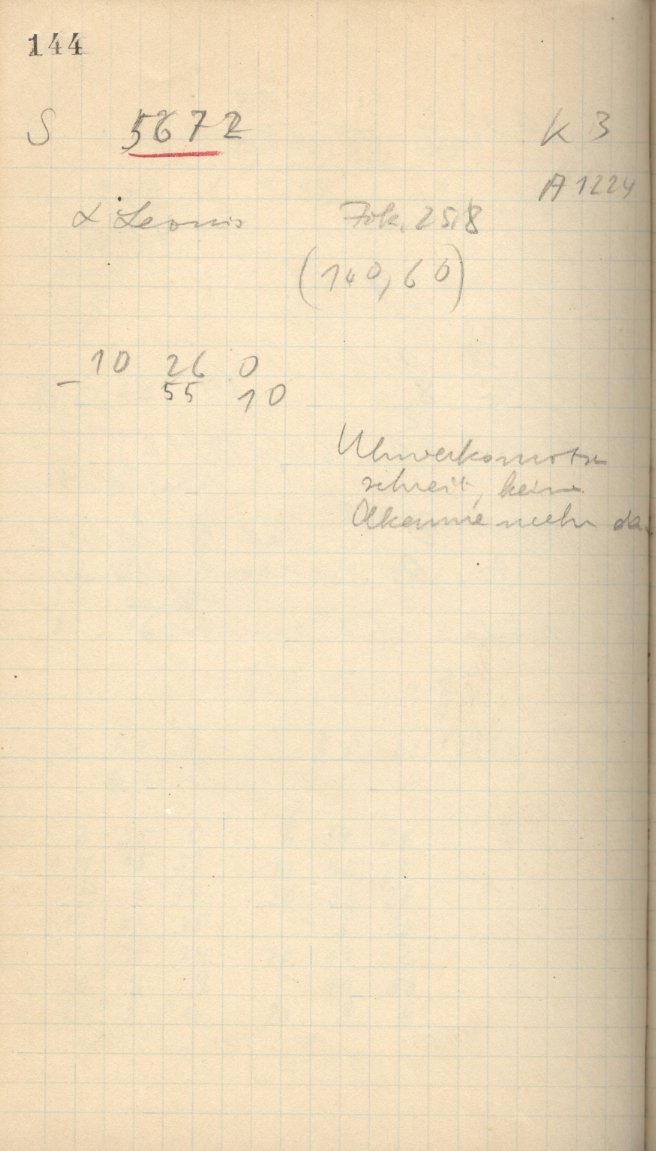 144
S 5672 K 3
A 1224
α Leonis Fok. 25,8
(140, 60)
10 26 0
– 55 10
Uhrwerksmotor
schreit, keine
mehr da